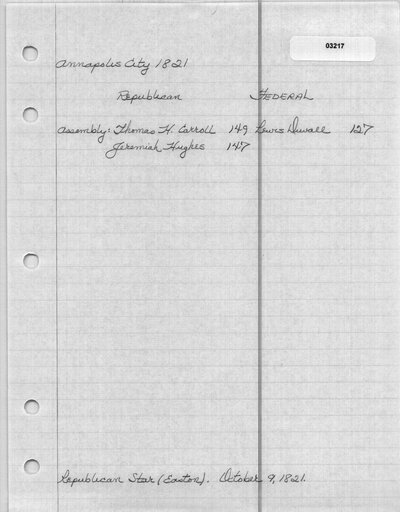 03217
Annapolis City 1821
Republican FEDERAL
Assembly: Thomas H. Carroll 149 Lewis Duvall 127
Jeremiah Hughes 147
Republican Star (Easton). October 9, 1821.